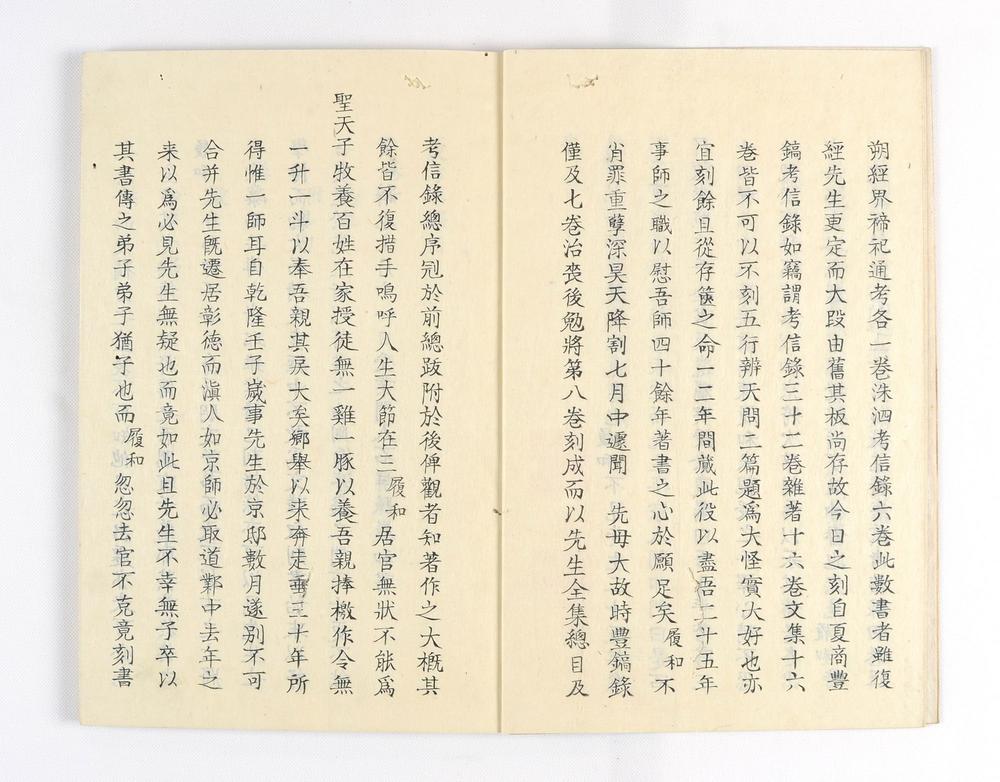 朔經界禘祀通考各一卷洙泗考信錄六卷此數書者雖復
經先生更定而大段由舊其板尚存故今日之刻自夏商豐
鎬考信錄如竊謂考信錄三十二卷雜著十六卷文集十六
卷皆不可以不刻五行辨天問二篇題為大怪實大好也亦
宜刻餘且從存篋之命一二年間蕆此役以盡吾二十五年
事師之職以慰吾師四十餘年著書之心於願足矣履和不
肖罪重孽深昊天降割七月中遽聞 先毋大故時豐鎬錄
僅及七卷治喪後勉將第八卷刻成而以先生全集總目及
考信錄總序冠於前總跋附於後俾觀者知著作之大概其
餘皆不復措手嗚呼人生大節在三履和居官無狀不能為
聖天子牧養百姓在家授徒無一雞一豚以養吾親捧檄作令無
一升一斗以奉吾親其戾大矣鄉舉以来奔走垂三十年所
得惟一師耳自乾隆壬子嵗事先生於京邸數月遂別不可
合并先生旣遷居彰德而滇人如京師必取道鄴中去年之
来以爲必見先生無疑也而竟如此且先生不幸無子卒以
其書傳之弟子弟子猶子也而履和忽忽去官不克竟刻書